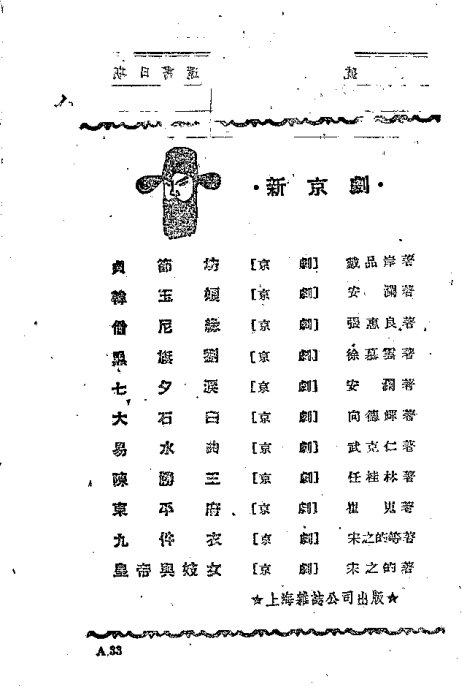 ·新京劇·
貞節坊 [京劇] 戴品岸著
韓玉娘 [京劇] 安瀾著
僧尼緣 [京劇] 張惠良著
黑旗劉 [京劇] 徐慕雲著
七夕淚 [京劇] 安瀾著
大石臼 [京劇] 向德輝著
易水曲 [京劇] 武克仁著
陳勝王 [京劇] 任桂林著
東平府 [京劇] 崔著
九件衣 [京劇] 宋之的等著
皇帝與妓女 [京劇] 宋之的著
☆上海雜誌公司出版★
A.33